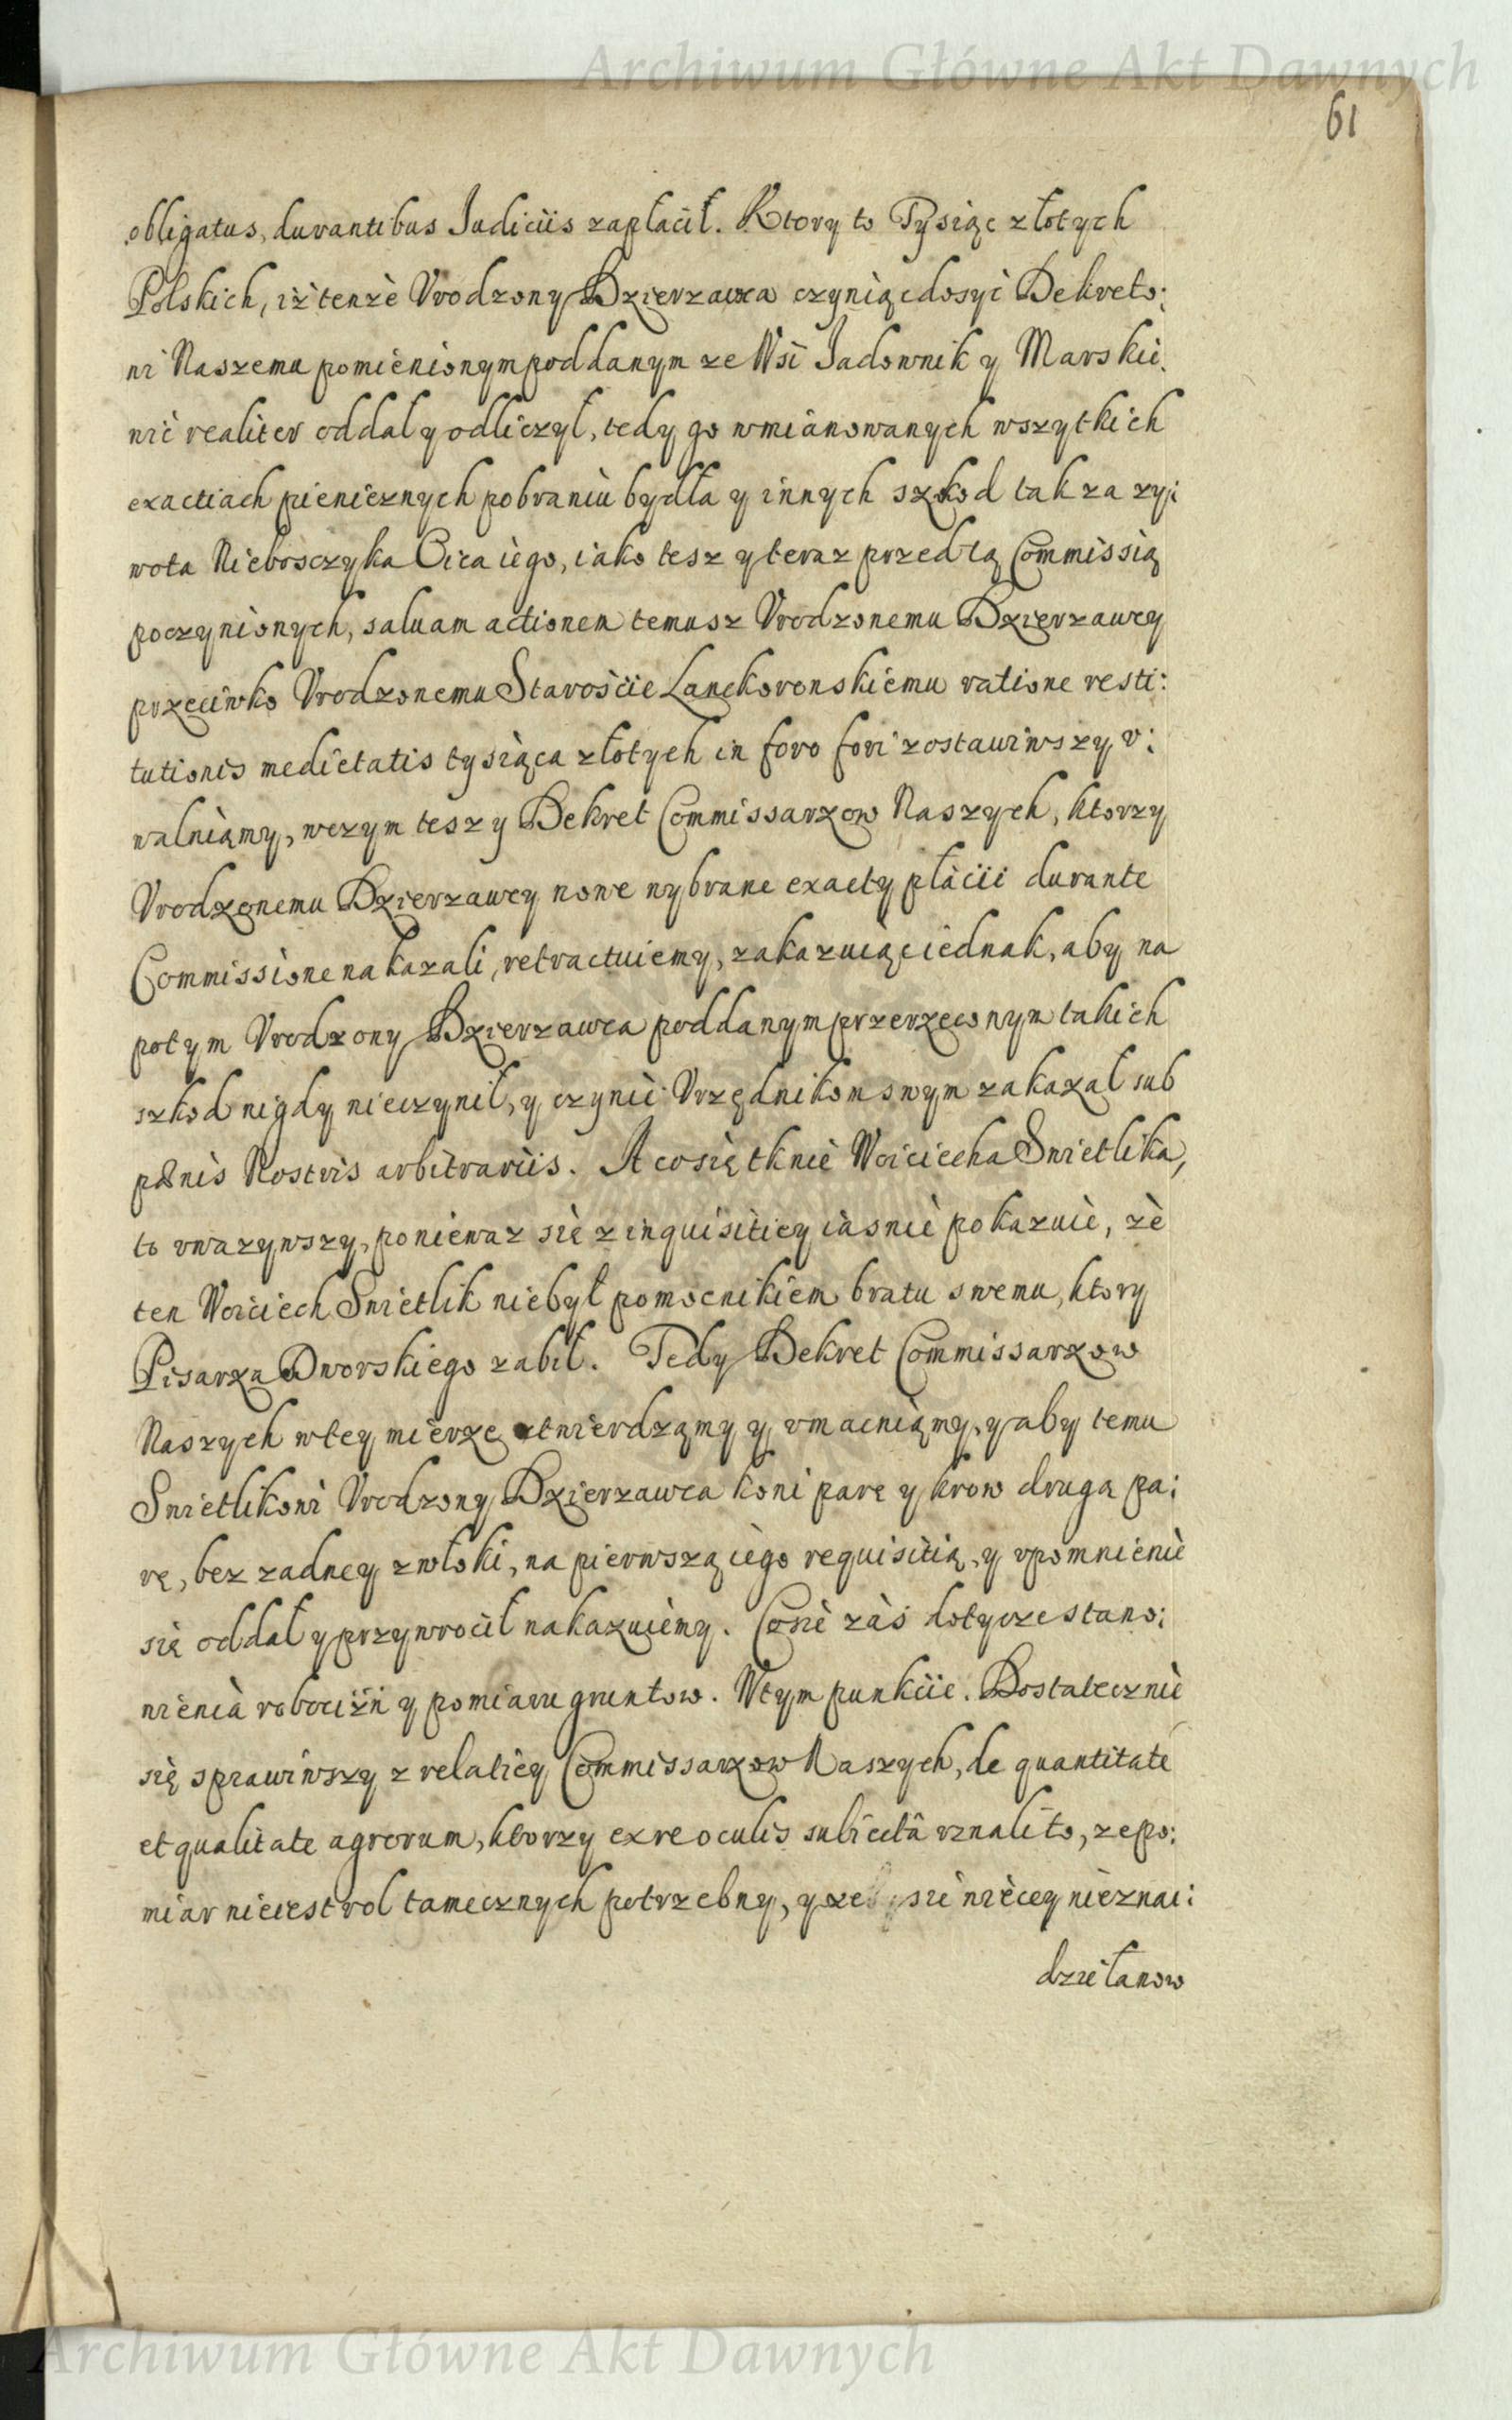 Archiwum Główne Akt Dawnych
61
obligatus, durantibus Judiciis zapłacił. Ktory to Tysiąc złotych
Polskich, iż tenże Vrodzony Dzierzawca czyniąc dosyć Dekreto:
wi Naszemu pomienionym poddanym ze Wsi Jadownik y Marskie.
nie realiter oddal y odliczył, tedy go wmianowanych wszytkich
exactiach pienieznych pobraniu bydła y innych szkod tak za zy:
wota Nieboszczyka Oica iego, iako tesz y teraz przed tą Commissią
poczynionych, saluam actionem temusz Vrodzonemu Dzierzawcy
przeciwko Vrodzonemu Starościie Lanckoronskiemu ratione resti:
tutionis medietatis tysiąca złotych in foro fori zostawiwszy v:
walniąmy, wczym tesz y Dekret Commissarzow Naszych, ktorzy
Vrodzonemu Dzierzawcy nowe wybrane exacty płacii durante
Commissione nakazali, retractuiemy, zakazuiąc iednak, aby na
potym Vrodzony Dzierzawca poddanym przerzeconym takich
szkod nigdy nieczynił, y czynić Vrzędnikom swym zakazał sub
pænis Nostris arbitrariis. A co się tknie Woiciecha Swietlika,
to vwazywszy, poniewaz się z inquisitiey iasnie pokazuie, że
ten Woiciech Swietlik niebył pomocnikiem bratu swemu, ktory
Pisarza Dworskiego zabił. Tedy Dekret Commissarzow
Naszych wtey mierze stwierdzamy y vmacniąmy, y aby temu
Swietlikowi Vrodzony Dzierzawca koni parę y krow drugą pa:
rę, bez zadney zwłoki, na pierwszą iego requisitią, y vpomnienie
się oddał y przywrocił nakazuiemy. Co sie zaś dotycze stano:
wienia robocizn y pomiaru gruntow. Wtym punkcie. Dostatecznie
się sprawiwszy z relatiey Commissarzow Naszych, de quantitate
et qualitate agrorum, ktorzy ex re oculis subiectâ vznali to, ze po:
miar nieiest rol tamecznych potrzebny, y zeby sie wiecey nieznai:
dzie łanow
Archiwum Główne Akt Dawnych